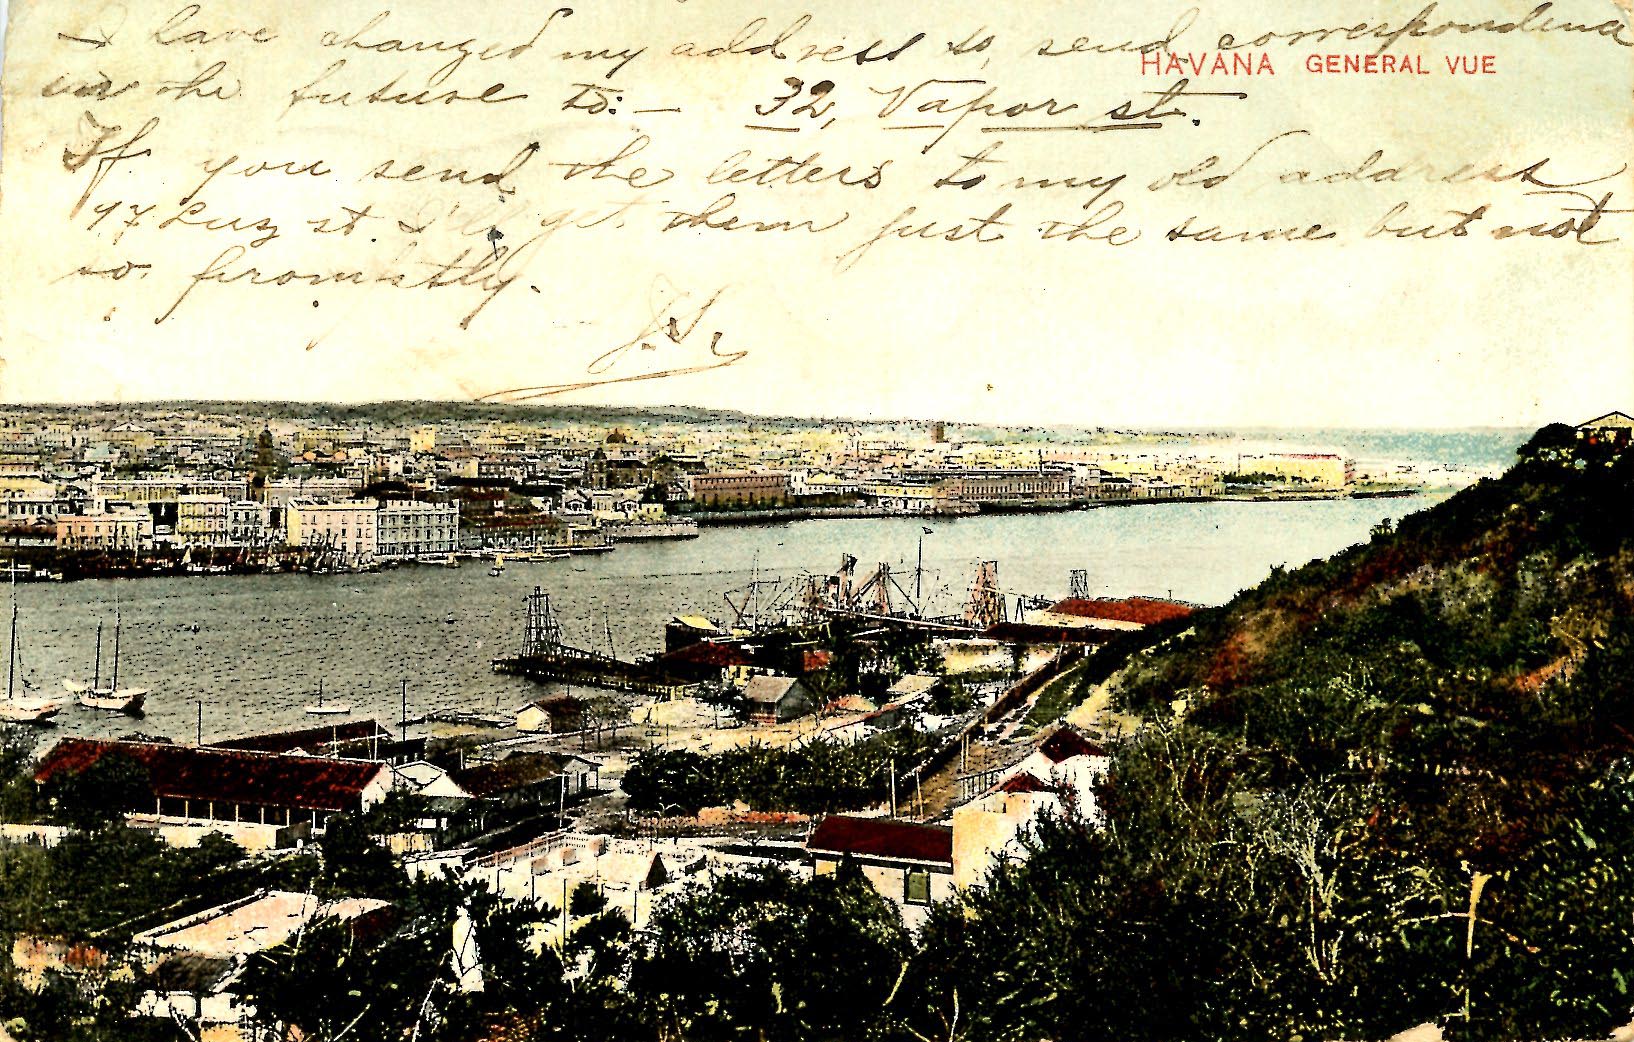 I have changed my address so, send correspondence
in the future to: - 32, Vapor st.
HAVANA GENERAL VUE
If you send the letters to my old address
97 Luz st. I'll get them just the same but not
so promptly.
J.S.